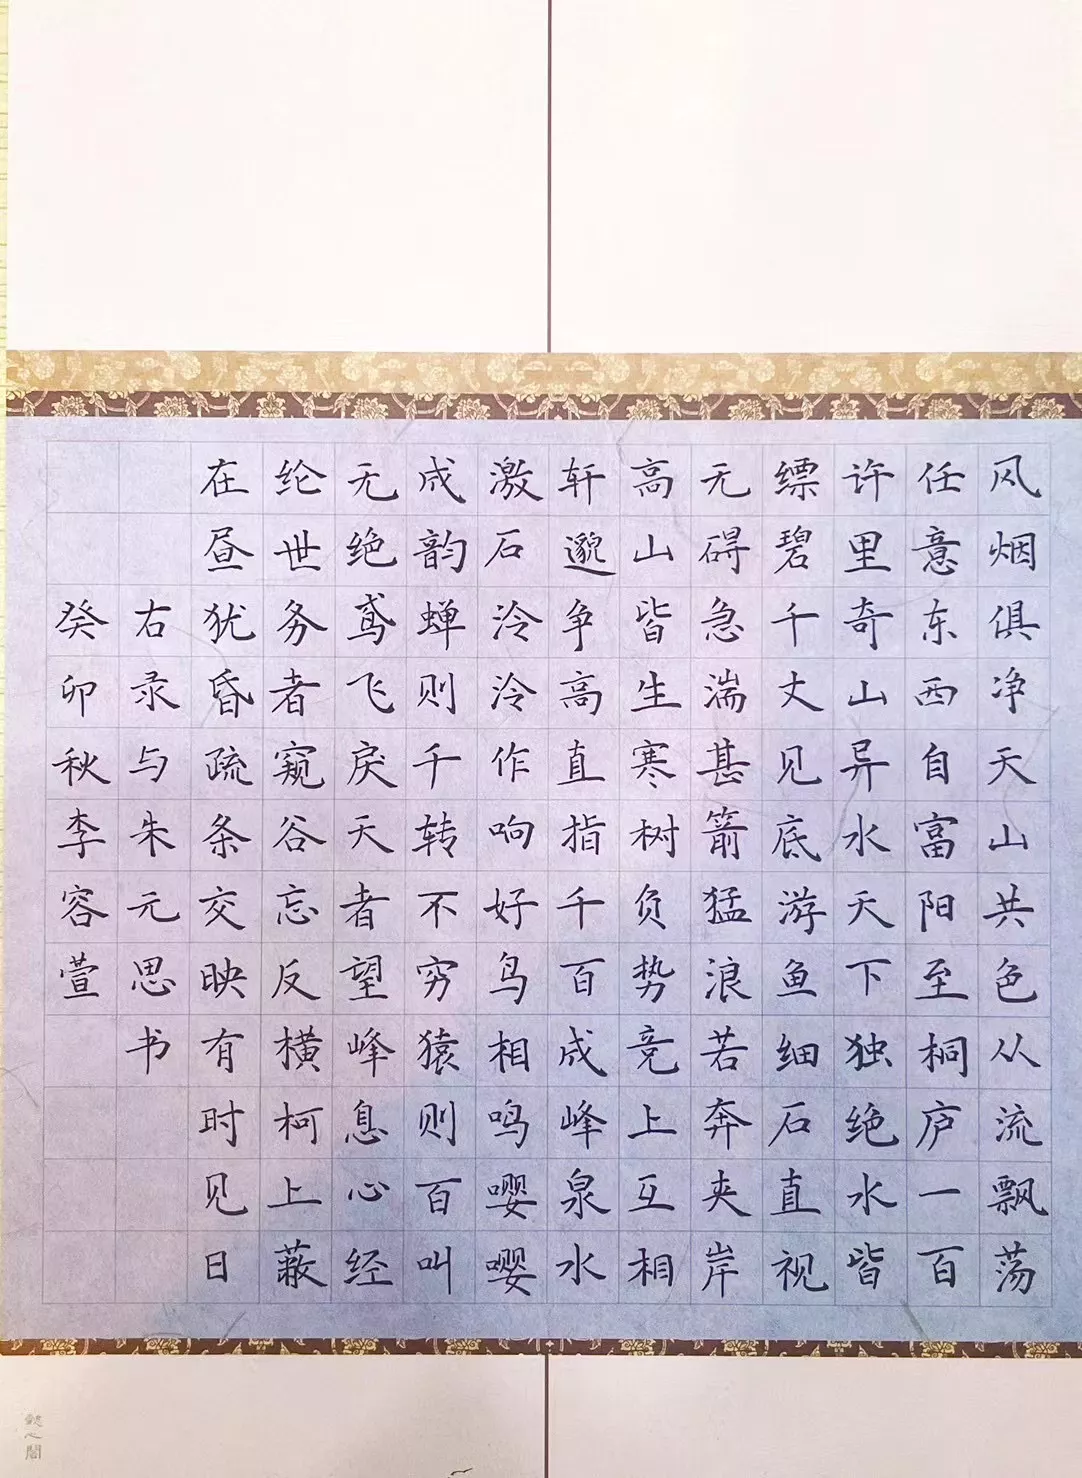 风烟俱净天山共色从流飘荡
任意东西自富阳至桐庐一百
许里奇山异水天下独绝水皆
缥碧千丈见底游鱼细石直视
无碍急湍甚箭猛浪若奔夹岸
高山皆生寒树负势竞上互相
轩邈争高直指千百成峰泉水
激石泠泠作响好鸟相鸣嘤嘤
成韵蝉则千转不穷猿则百叫
无绝鸢飞戾天者望峰息心经
纶世务者窥谷忘反横柯上蔽
在昼犹昏疏条交映有时见日
右录与朱元思书
癸卯秋李容萱
懿心阁